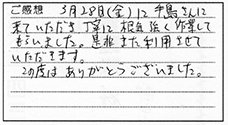 ご感想
3月28日(金)に手島さんに
来ていただき、丁寧に根気強く作業して
もらいました。是非また利用させて
いただきます。
この度はありがとうございました。